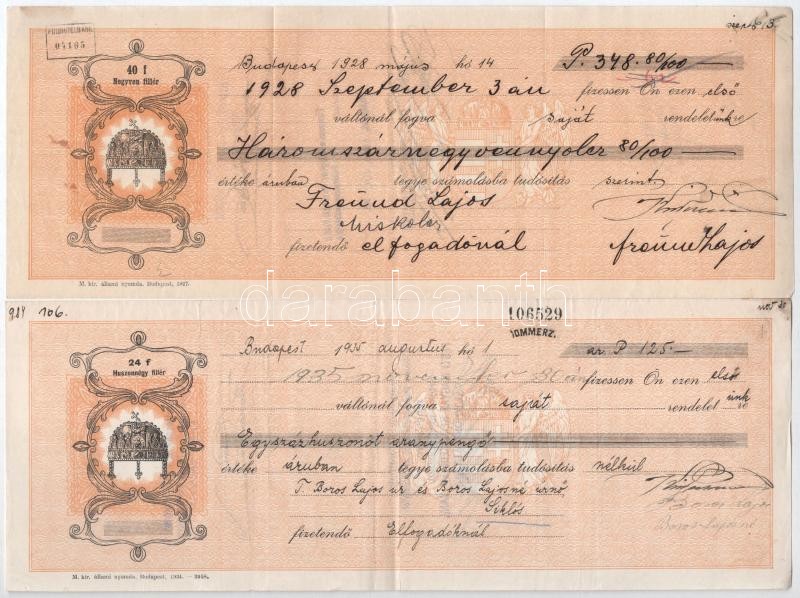 szept. 3.
04105
40 f
Negyven fillér
Budapest 1928 május hó 14 P. 348. 80/100
1928 Szeptember 3 án fizessen Ön ezen első
váltónál fogva saját rendeletünkre
Háromszáznegyvennyolcz 80/100
értéke áruban tegye számolásba tudósítás szerint.
Freund Lajos
Miskolcz
fizetendő elfogadónál Freund Lajos
M. kir. állami nyomda. Budapest, 1927.
darabanth
984 106. 106529 nov 30
IOMMERZ.
24 f
Huszonnégy fillér
Budapest 1935 augusztus hó 1 ar. P 125.-
1935 november 30 án fizessen Ön ezen első
váltónál fogva saját rendelet ünk re
Egyszázhuszonöt aranypengő
értéke áruban tegye számolásba tudósítás nélkül
T. Boros Lajos ur és Boros Lajosné urnő,
Siklós
Boros Lajos
Boros Lajosné
fizetendő Elfogadóknál
M. kir. állami nyomda, Budapest, 1934. —